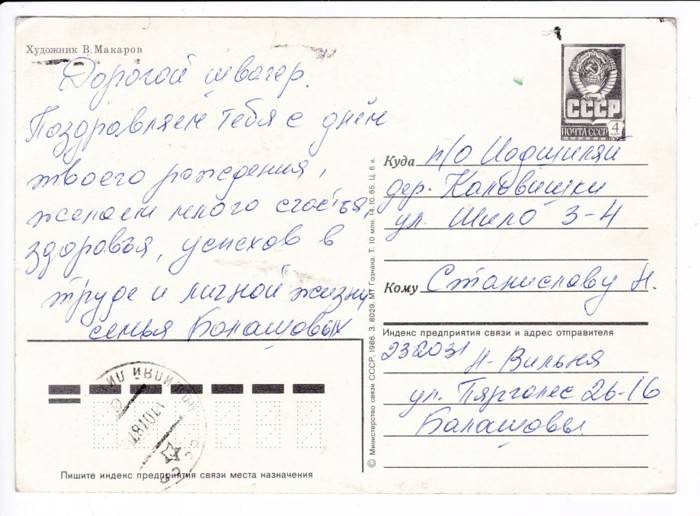 Художник В. Макаров
Дорогой швагер.
Поздравляем тебя с днём
твоего рождения,
желаем много счастья,
здоровья, успехов в
труде и личной жизни
семья Балашовых
СССР
ПОЧТА СССР 4
Куда п/о
дер.
ул. Шило 3-4
Кому Станиславу Н.
Индекс предприятия связи и адрес отправителя
232031 Н-Вильня
ул. Пяргалес 26-16
Балашовы
Пишите индекс предприятия связи места назначения
© Министерство связи СССР, 1986. З. 8029. МТ Гознака. Т. 10 млн. 14.10.85. Ц. 6 к.